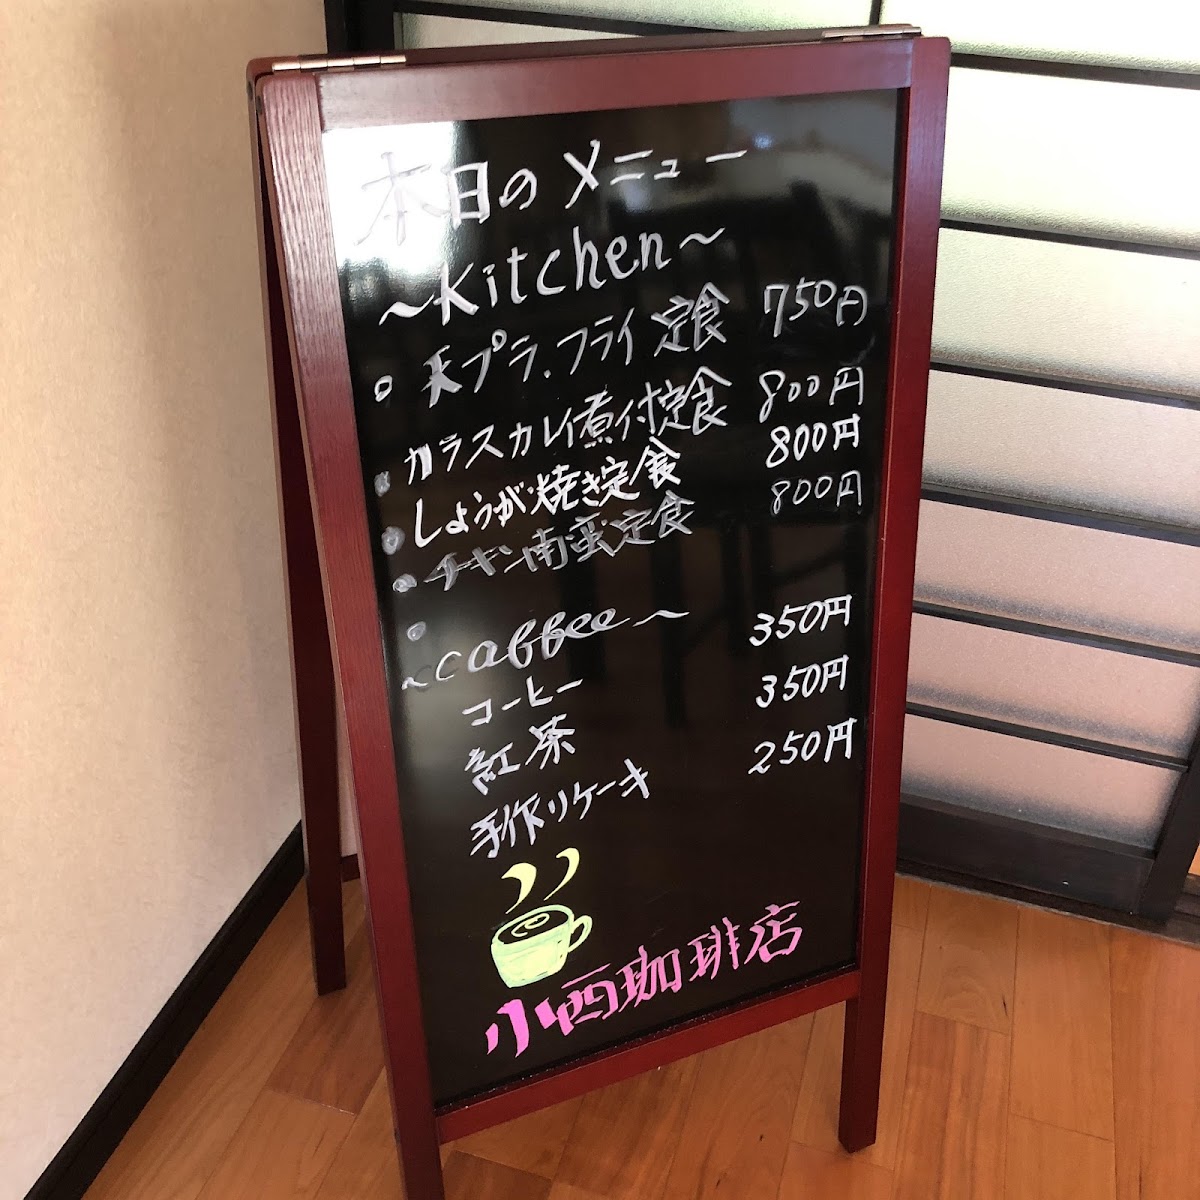 本日のメニュー
~Kitchen~
天プラ.フライ定食 750円
カラスカレイ煮付定食 800円
しょうが焼き定食 800円
チキン南蛮定食 800円
~caffee~
コーヒー 350円
紅茶 350円
手作りケーキ 250円
小西珈琲店